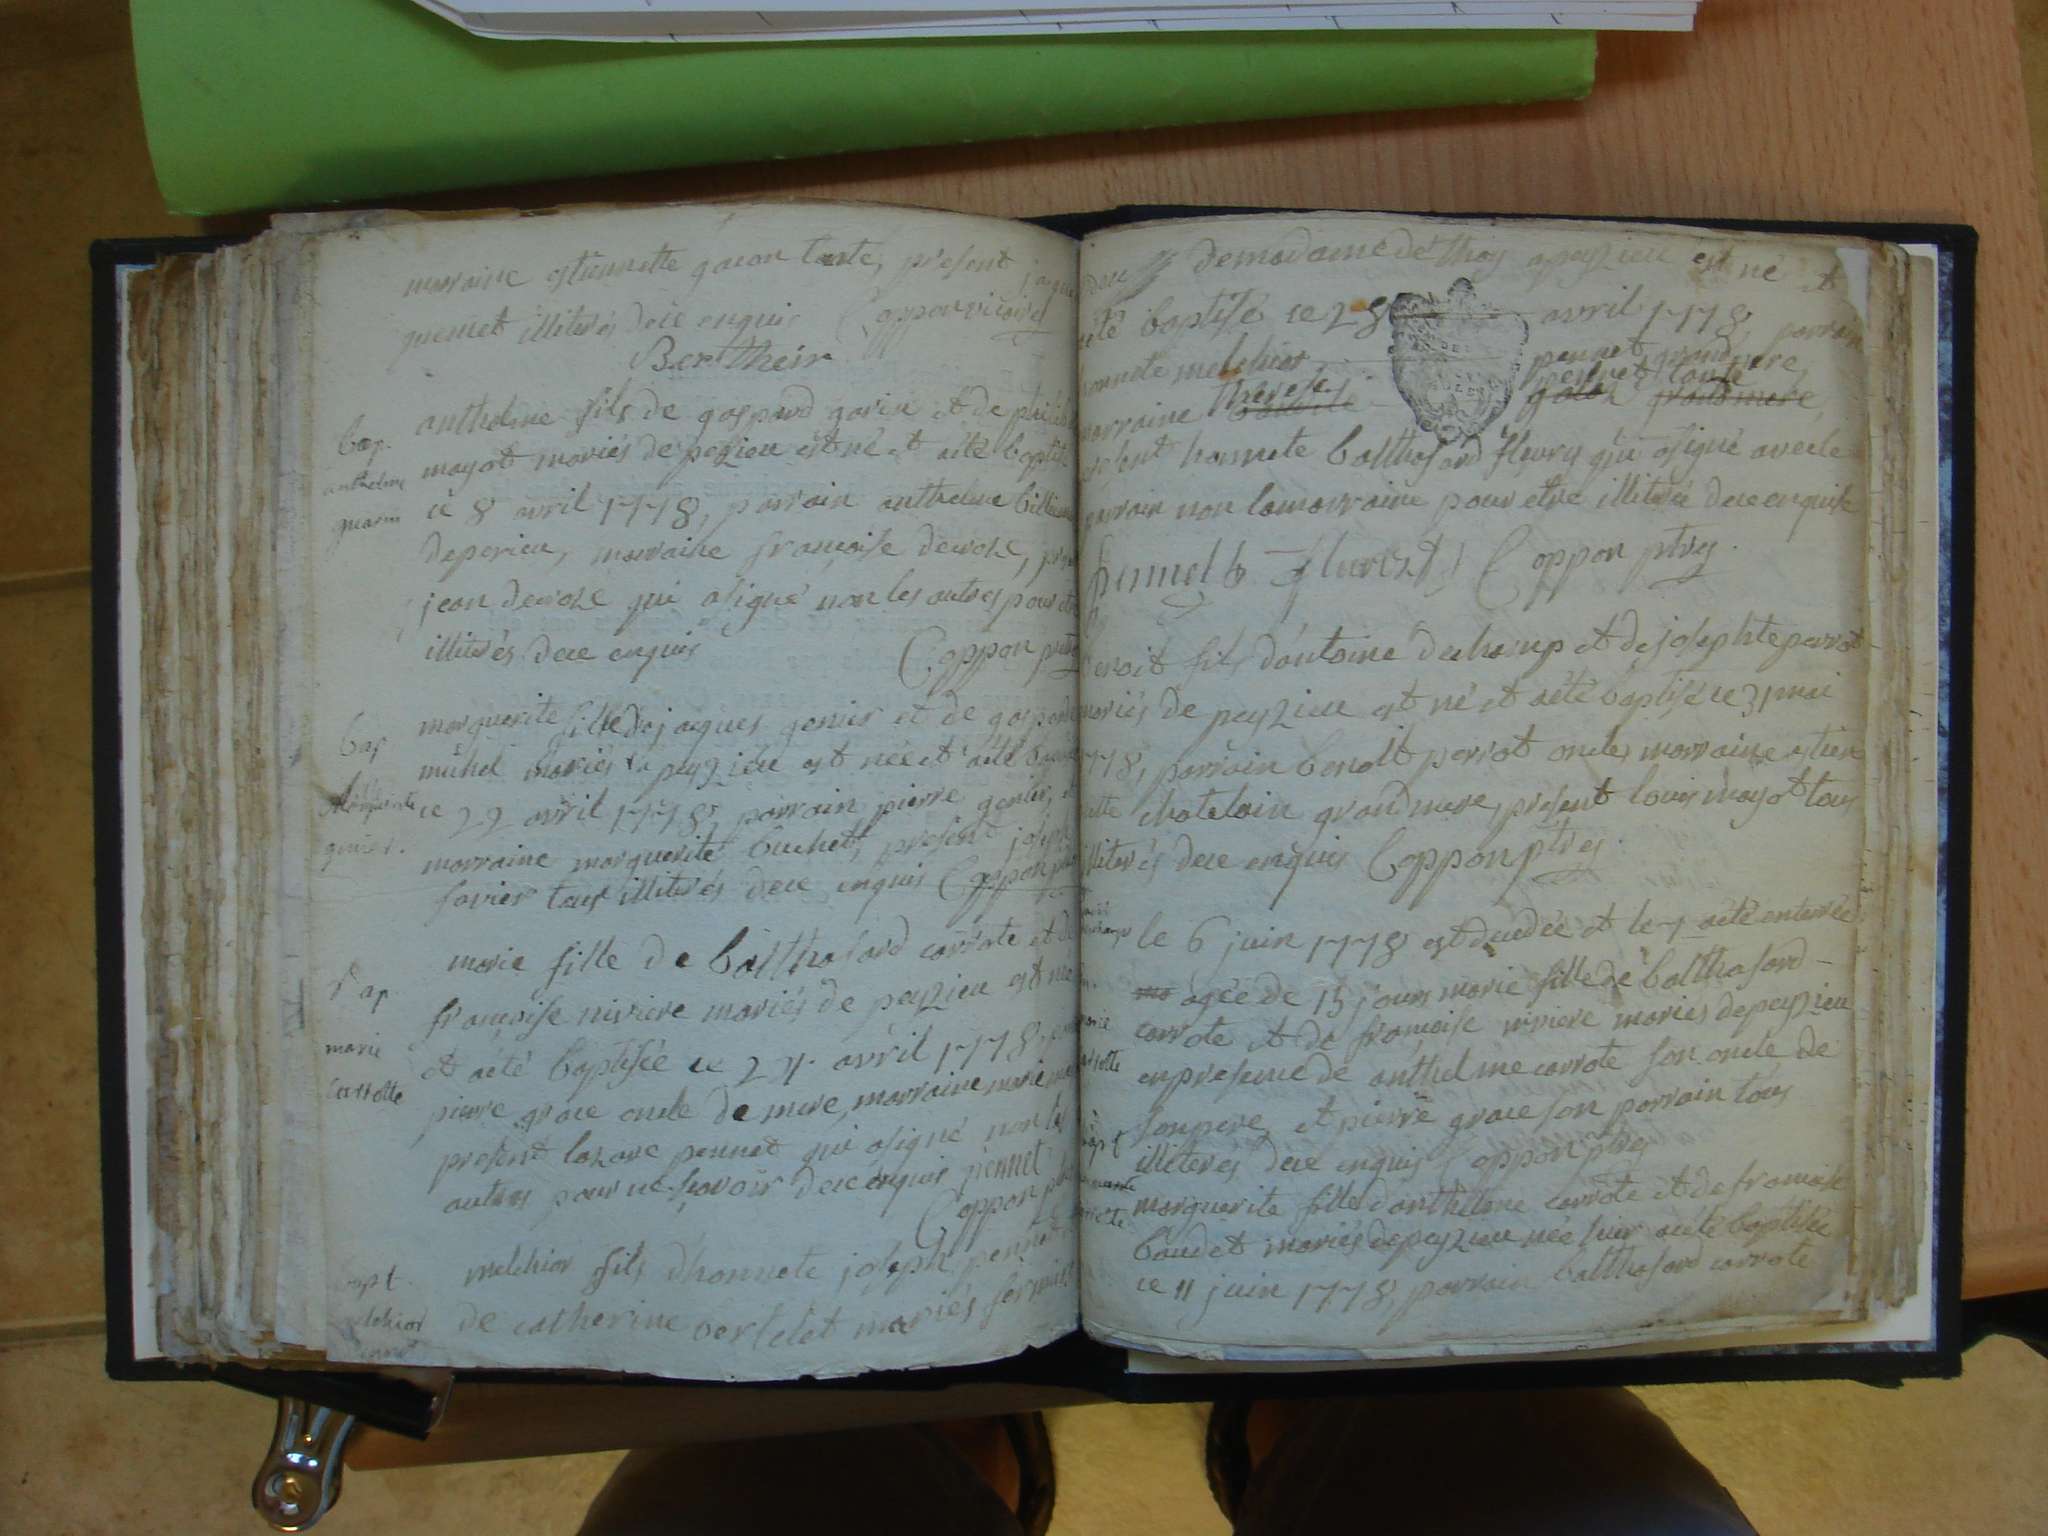 marraine estiennette gacon tante, present
guemet illiterés de ce enquis Coppon vicaire
Bertheir
bap.
anthelme
guarin
anthelme fils de gaspard garin et de
mayot mariés de pezieu est né et a été baptisé
ce 8 avril 1778, parrain anthelme
de pezieu, marraine françoise
jean qui a signé non les autres pour
illiterés de ce enquis
Coppon
bap
Marguerite
genier.
marguerite fille de jacques genier et de
michel mariés à peyzieu est née et a été
ce 29 avril 1778, parrain pierre genier,
marraine marguerite buchet, present joseph
savier tous illiterés de ce enquis Coppon
bap
marie
Carrotte
marie fille de balthasard carrote et de
françoise riviere mariés de peyzieu est née
et a été baptisée ce 27 avril 1778,
pierre grace oncle de mere, marraine marie
present lazare pennet qui a signé non les
autres pour ne scavoir de ce enquis pennet
Coppon
bapt
melchior
pennet
melchior fils d'honnete joseph pennet
de catherine bertelet mariés fermier
de madame de a peyzieu est né et
été baptisé ce 28 avril 1778, parrain
honnete melchior pennet grand pere,
marraine therese pennet tante
present honnete balthasard fleury qui a signé avec le
parrain non la marraine pour etre illiterée de ce enquise
pennet fleury Coppon ptre
benoit fils d'antoine dechamp et de josephte perrot
mariés de peyzieu est né et a été baptisé ce 31 mai
1778, parrain benoit perrot oncle, marraine estien
nette chatelain grand mere, present louis mayot tous
illiterés de ce enquis Coppon ptre
le 6 juin 1778 est decedée et le 7 a été enterrée
agée de 15 jours marie fille de balthasard
carrote et de françoise riviere mariés de peyzieu
en presence de anthelme carrote son oncle de
son pere, et pierre grace son parrain tous
illiterés de ce enquis Coppon ptre
bapt
marguerite fille d'anthelme carrote et de françoise
baudet mariés de peyzieu née hier a été baptisée
ce 11 juin 1778, parrain balthasard carrote